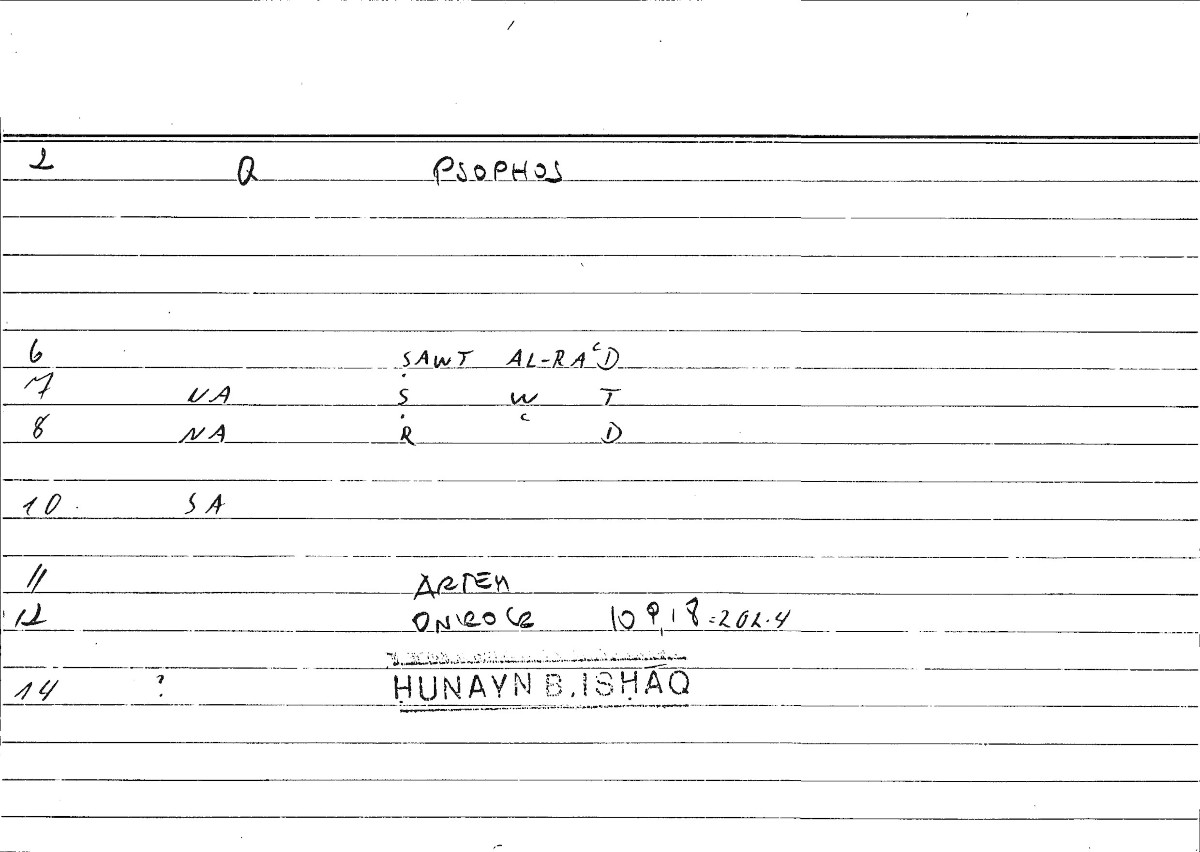 2 Q PSOPHOS
6 ṢAWT AL-RAʿD
7 NA Ṣ W T
8 NA R ʿ D
10 SA
11 ARTEM
12 ONIROCR 109,18=202.4
14 ? ḤUNAYN B. ISḤĀQ